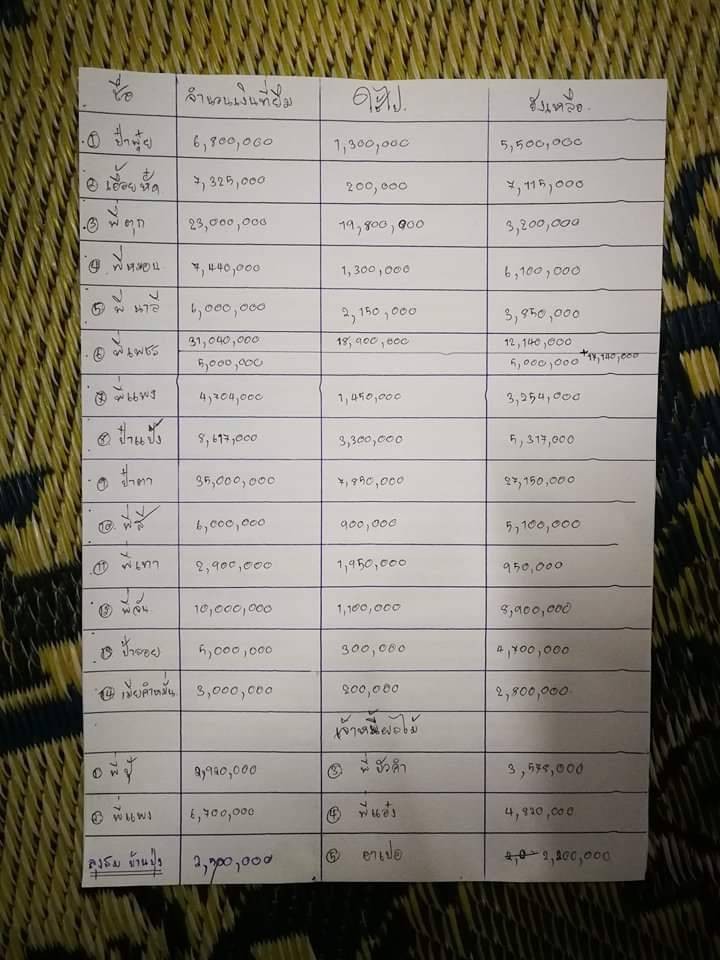 ชื่อ จำนวนเงินที่ยืม ใช้ไป ยังเหลือ
① ป้าพุ้ย 6,800,000 1,300,000 5,500,000
② เอื้อย 7,325,000 200,000 7,115,000
③ พี่ตุก 23,000,000 19,800,000 3,200,000
④ พี่หมอน 7,440,000 1,300,000 6,100,000
⑤ พี่ นาลี 6,000,000 2,150,000 3,850,000
⑥ พี่เพชร 31,040,000 18,900,000 12,140,000
5,000,000 5,000,000 +17,140,000
⑦ พี่แพง 4,704,000 1,450,000 3,254,000
⑧ ป้าแป้ง 8,617,000 3,300,000 5,317,000
⑨ ป้าตา 35,000,000 7,850,000 27,150,000
⑩ พี่ลี่ 6,000,000 900,000 5,100,000
⑪ พี่เทา 2,900,000 1,950,000 950,000
⑫ พี่ลัน 10,000,000 1,100,000 8,900,000
⑬ ป้าจอย 5,000,000 300,000 4,700,000
⑭ เมียคำหมั่น 3,000,000 200,000 2,800,000
เจ้าหนี้ผลไม้
① พี่ปู้ 2,920,000 ③ พี่บัวคำ 3,578,000
② พี่แพง 6,700,000 ④ พี่แอ๋ง 4,820,000
ลุงสม บ้านปุ่ง 2,500,000 ⑤ อาเปอ 2,200,000